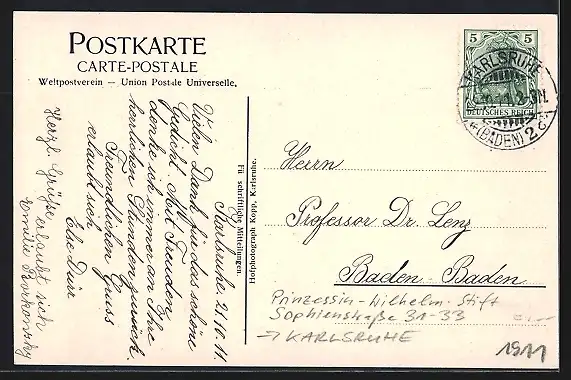 POSTKARTE
CARTE-POSTALE
Weltpostverein — Union Postale Universelle.
Karlsruhe 21.10.11
Vielen Dank für das schöne
Gedicht. Mit Freuden
denke ich immer an Ihre
herrlichen Stunden zurück.
Freundlichen Gruss
erlaubt sich
Else Dürr
Herzl. Grüße erlaubt sich
Emilie Borkowsky
Für schriftliche Mitteilungen.
Hofphotograph Kopp, Karlsruhe.
5 5
DEUTSCHES REICH
KARLSRUHE
(BADEN) 2
Herrn
Professor Dr. Lenz
Baden-Baden
Prinzessin-Wilhelm-Stift
Sophienstraße 31-33
→ KARLSRUHE
1911